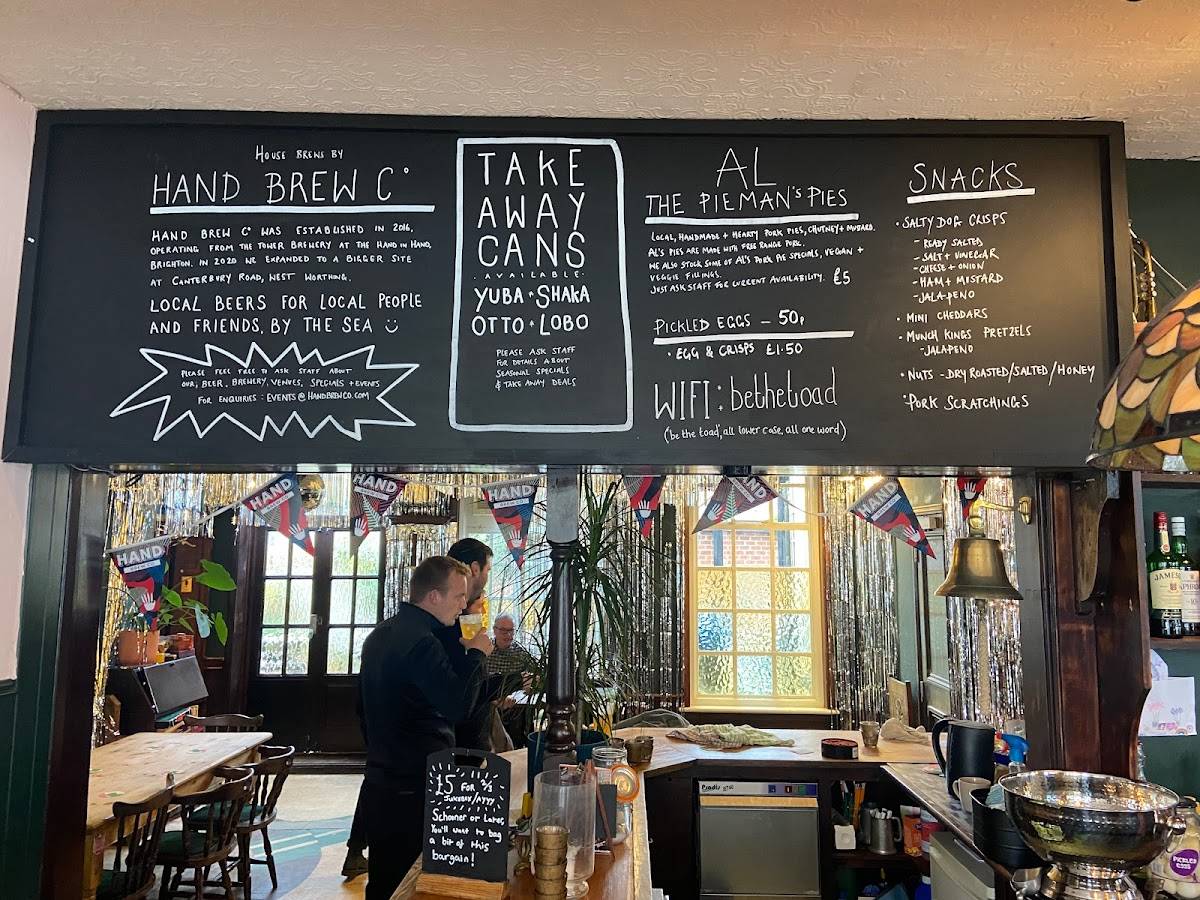 House Brews by
HAND BREW Cº
HAND BREW Cº WAS ESTABLISHED IN 2016,
OPERATING FROM THE TOWER BREWERY AT THE HAND IN HAND,
BRIGHTON. IN 2020 WE EXPANDED TO A BIGGER SITE
AT CANTERBURY ROAD, WEST WORTHING.
LOCAL BEERS FOR LOCAL PEOPLE
AND FRIENDS, BY THE SEA
PLEASE FEEL FREE TO ASK STAFF ABOUT
OUR; BEER, BREWERY, VENUES, SPECIALS + EVENTS
FOR ENQUIRIES: EVENTS@HANDBREWCO.COM
TAKE
AWAY
CANS
·AVAILABLE·
YUBA · SHAKA
OTTO · LOBO
PLEASE ASK STAFF
FOR DETAILS ABOUT
SEASONAL SPECIALS
& TAKE AWAY DEALS
AL
THE PIEMAN'S PIES
LOCAL, HANDMADE + HEARTY PORK PIES, CHUTNEY + MUSTARD.
AL'S PIES ARE MADE WITH FREE RANGE PORK.
WE ALSO STOCK SOME OF AL'S PORK PIE SPECIALS, VEGAN +
VEGGIE FILLINGS.
JUST ASK STAFF FOR CURRENT AVAILABILITY. £5
PICKLED EGGS - 50p
· EGG & CRISPS £1.50
WIFI: bethetoad
('be the toad', all lower case, all one word)
SNACKS
· SALTY DOG CRISPS
- READY SALTED
- SALT + VINEGAR
- CHEESE + ONION
- HAM + MUSTARD
- JALAPENO
· MINI CHEDDARS
· MUNCH KINGS PRETZELS
- JALAPENO
· NUTS - DRY ROASTED/SALTED/HONEY
· PORK SCRATCHINGS
HAND
BREW CO
HAND
BREW CO
HAND
BREW CO
HAND
BREW CO
HAND
BREW CO
HAND
JAMES
£5 FOR 2/3
JUKEBOX/AYYY
Schooner or Later,
You'll want to bag
a bit of this
bargain!
PICKLED
EGGS